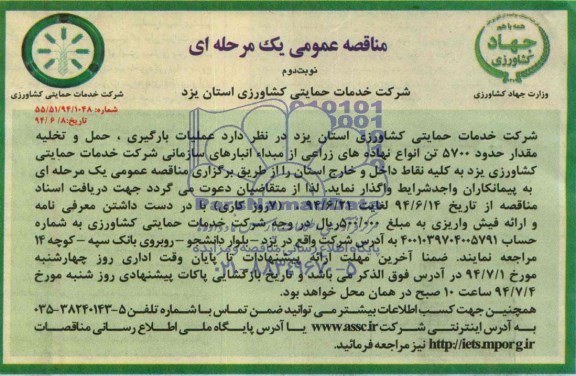 مناقصه عمومی یک مرحله ای
نوبت دوم
شرکت خدمات حمایتی کشاورزی استان یزد
همه با هم
جهاد
کشاورزی
وزارت جهاد کشاورزی
شرکت خدمات حمایتی کشاورزی
شماره: ۵۵/۵۱/۹۴/۱۰۴۸
تاریخ: ۹۴/۶/۸
شرکت خدمات حمایتی کشاورزی استان یزد در نظر دارد عملیات بارگیری ، حمل و تخلیه
مقدار حدود ۵۷۰۰ تن انواع نهاده های زراعی از مبداء انبارهای سازمانی شرکت خدمات حمایتی
کشاورزی یزد به کلیه نقاط داخل و خارج استان را از طریق برگزاری مناقصه عمومی یک مرحله ای
به پیمانکاران واجد شرایط واگذار نماید. لذا از متقاضیان دعوت می گردد جهت دریافت اسناد
مناقصه از تاریخ ۹۴/۶/۱۴ لغایت ۹۴/۶/۲۱ (۷روز کاری) با در دست داشتن معرفی نامه
و ارائه فیش واریزی به مبلغ ۵۰۰/۰۰۰ ریال در وجه شرکت خدمات حمایتی کشاورزی به شماره
حساب ۴۰۰۱۰۳۹۷۰۴۰۰۵۷۹۱ به آدرس شرکت واقع در یزد – بلوار دانشجو – روبروی بانک سپه – کوچه ۱۴
مراجعه نمایند. ضمنا آخرین مهلت ارائه پیشنهادات تا پایان وقت اداری روز چهارشنبه
مورخ ۹۴/۷/۱ در آدرس فوق الذکر می باشد و تاریخ بازگشایی پاکات پیشنهادی روز شنبه مورخ
۹۴/۷/۴ ساعت ۱۰ صبح در همان محل خواهد بود.
همچنین جهت کسب اطلاعات بیشتر می توانید ضمن تماس با شماره تلفن ۵-۳۸۲۴۰۱۴۳-۰۳۵
به آدرس اینترنتی شرکت www.assc.ir یا آدرس پایگاه ملی اطلاع رسانی مناقصات
http://iets.mporg.ir نیز مراجعه فرمائید.
پایگاه اطلاع رسانی مناقصه و مزایده
۰۲۱-۸۸۳۴۹۶۷۰-۵